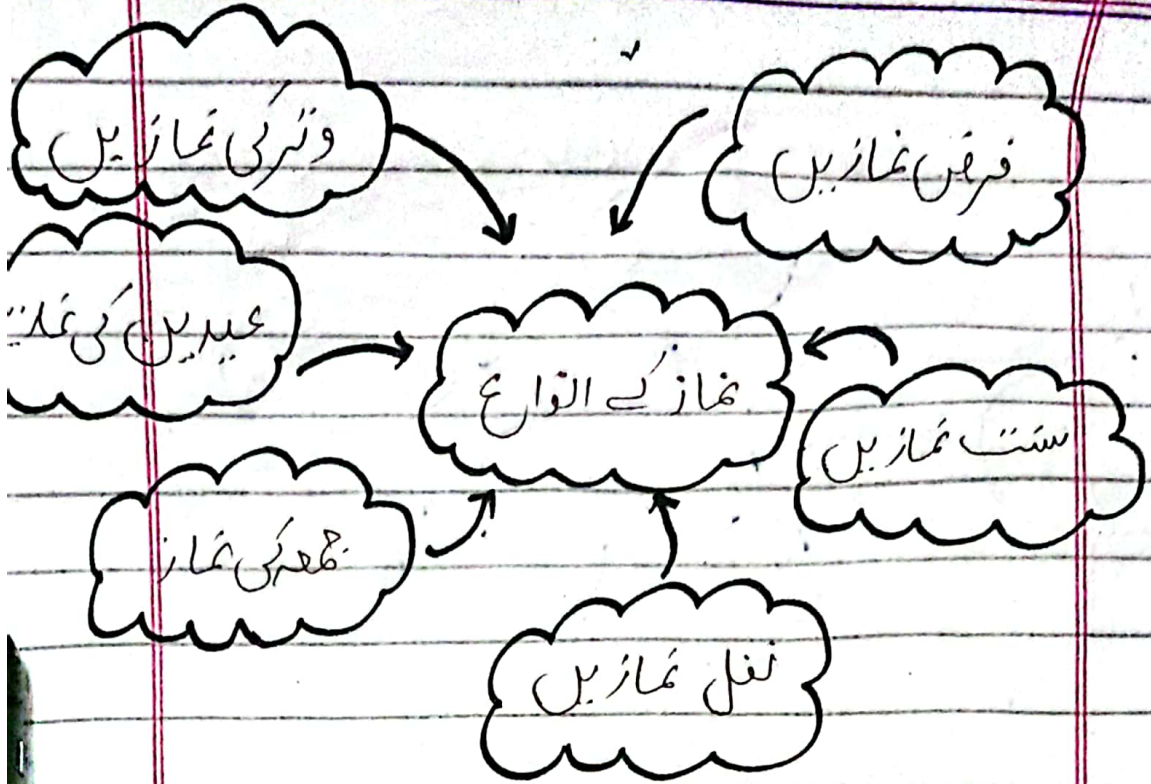 وتر کی نمازیں
فرض نمازیں
عیدین کی
نماز کے انواع
سنت نمازیں
جمعہ کی نماز
نفل نمازیں